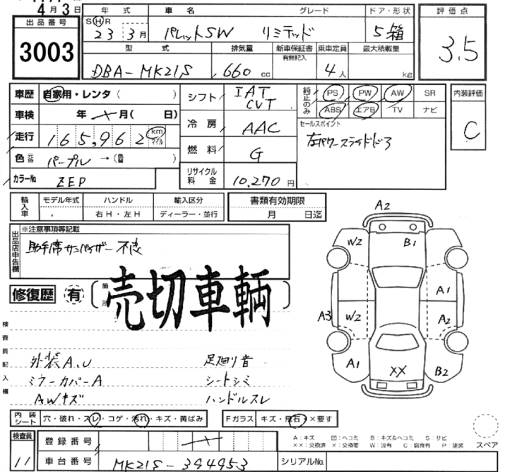 4月3日
出品番号
3003
年式 車名 グレード ドア・形状
SHR 23年3月 パレットSW リミテッド 5 箱
型式 排気量 新車保証書 有無記入 乗車定員 最大積載量
DBA-MK21S 660 cc 4人 kg
評価点
3.5
車歴 自家用・レンタ( )
車検 年 月( )
走行 165,962 km マイル
色 元色 パープル →(替 )
カラーNo. ZEP
シフト IAT CVT
冷房 AAC
燃料 G
リサイクル料金 10,270円
純正のみ PS PW AW SR
ABS エアB TV ナビ
セールスポイント
左パワースライドドア
内装評価
C
輸入車 モデル年式 ハンドル 輸入区分
右H・左H ディーラー・並行
書類有効期限
月 日迄
出品店申告欄
※注意事項等記載
助手席サンバイザー不良
修復歴 有 箇所( )
売切車輌
検査員記入欄
外装A.U 足廻り音
ミラーカバーA シートシミ
AWキズ ハンドルスレ
A2
W2 B1
A1
A3 W2 W2 A1
A1 XX B2
内装シート 穴・破れ・スレ・コゲ・汚れ・キズ・黄ばみ
Fガラス キズ・飛石・×要す
A:キズ 凹:ヘコミ B:キズ&ヘコミ S:サビ
XX:交換済 X:要交換 W:波有 C:腐食有 P:塗装
スペア
検査員 11
登録番号
車台番号 MK21S-394953
シリアルNo.